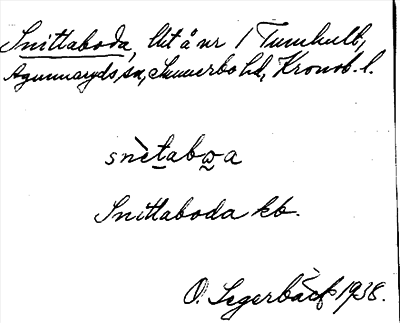 Snittaboda, lht å nr 1 Tunnhult,
Agunnaryds sn, Sunnerbo hd, Kronob. l.
snètabωa
Snittaboda kb.
O. Segerbäck 1938.